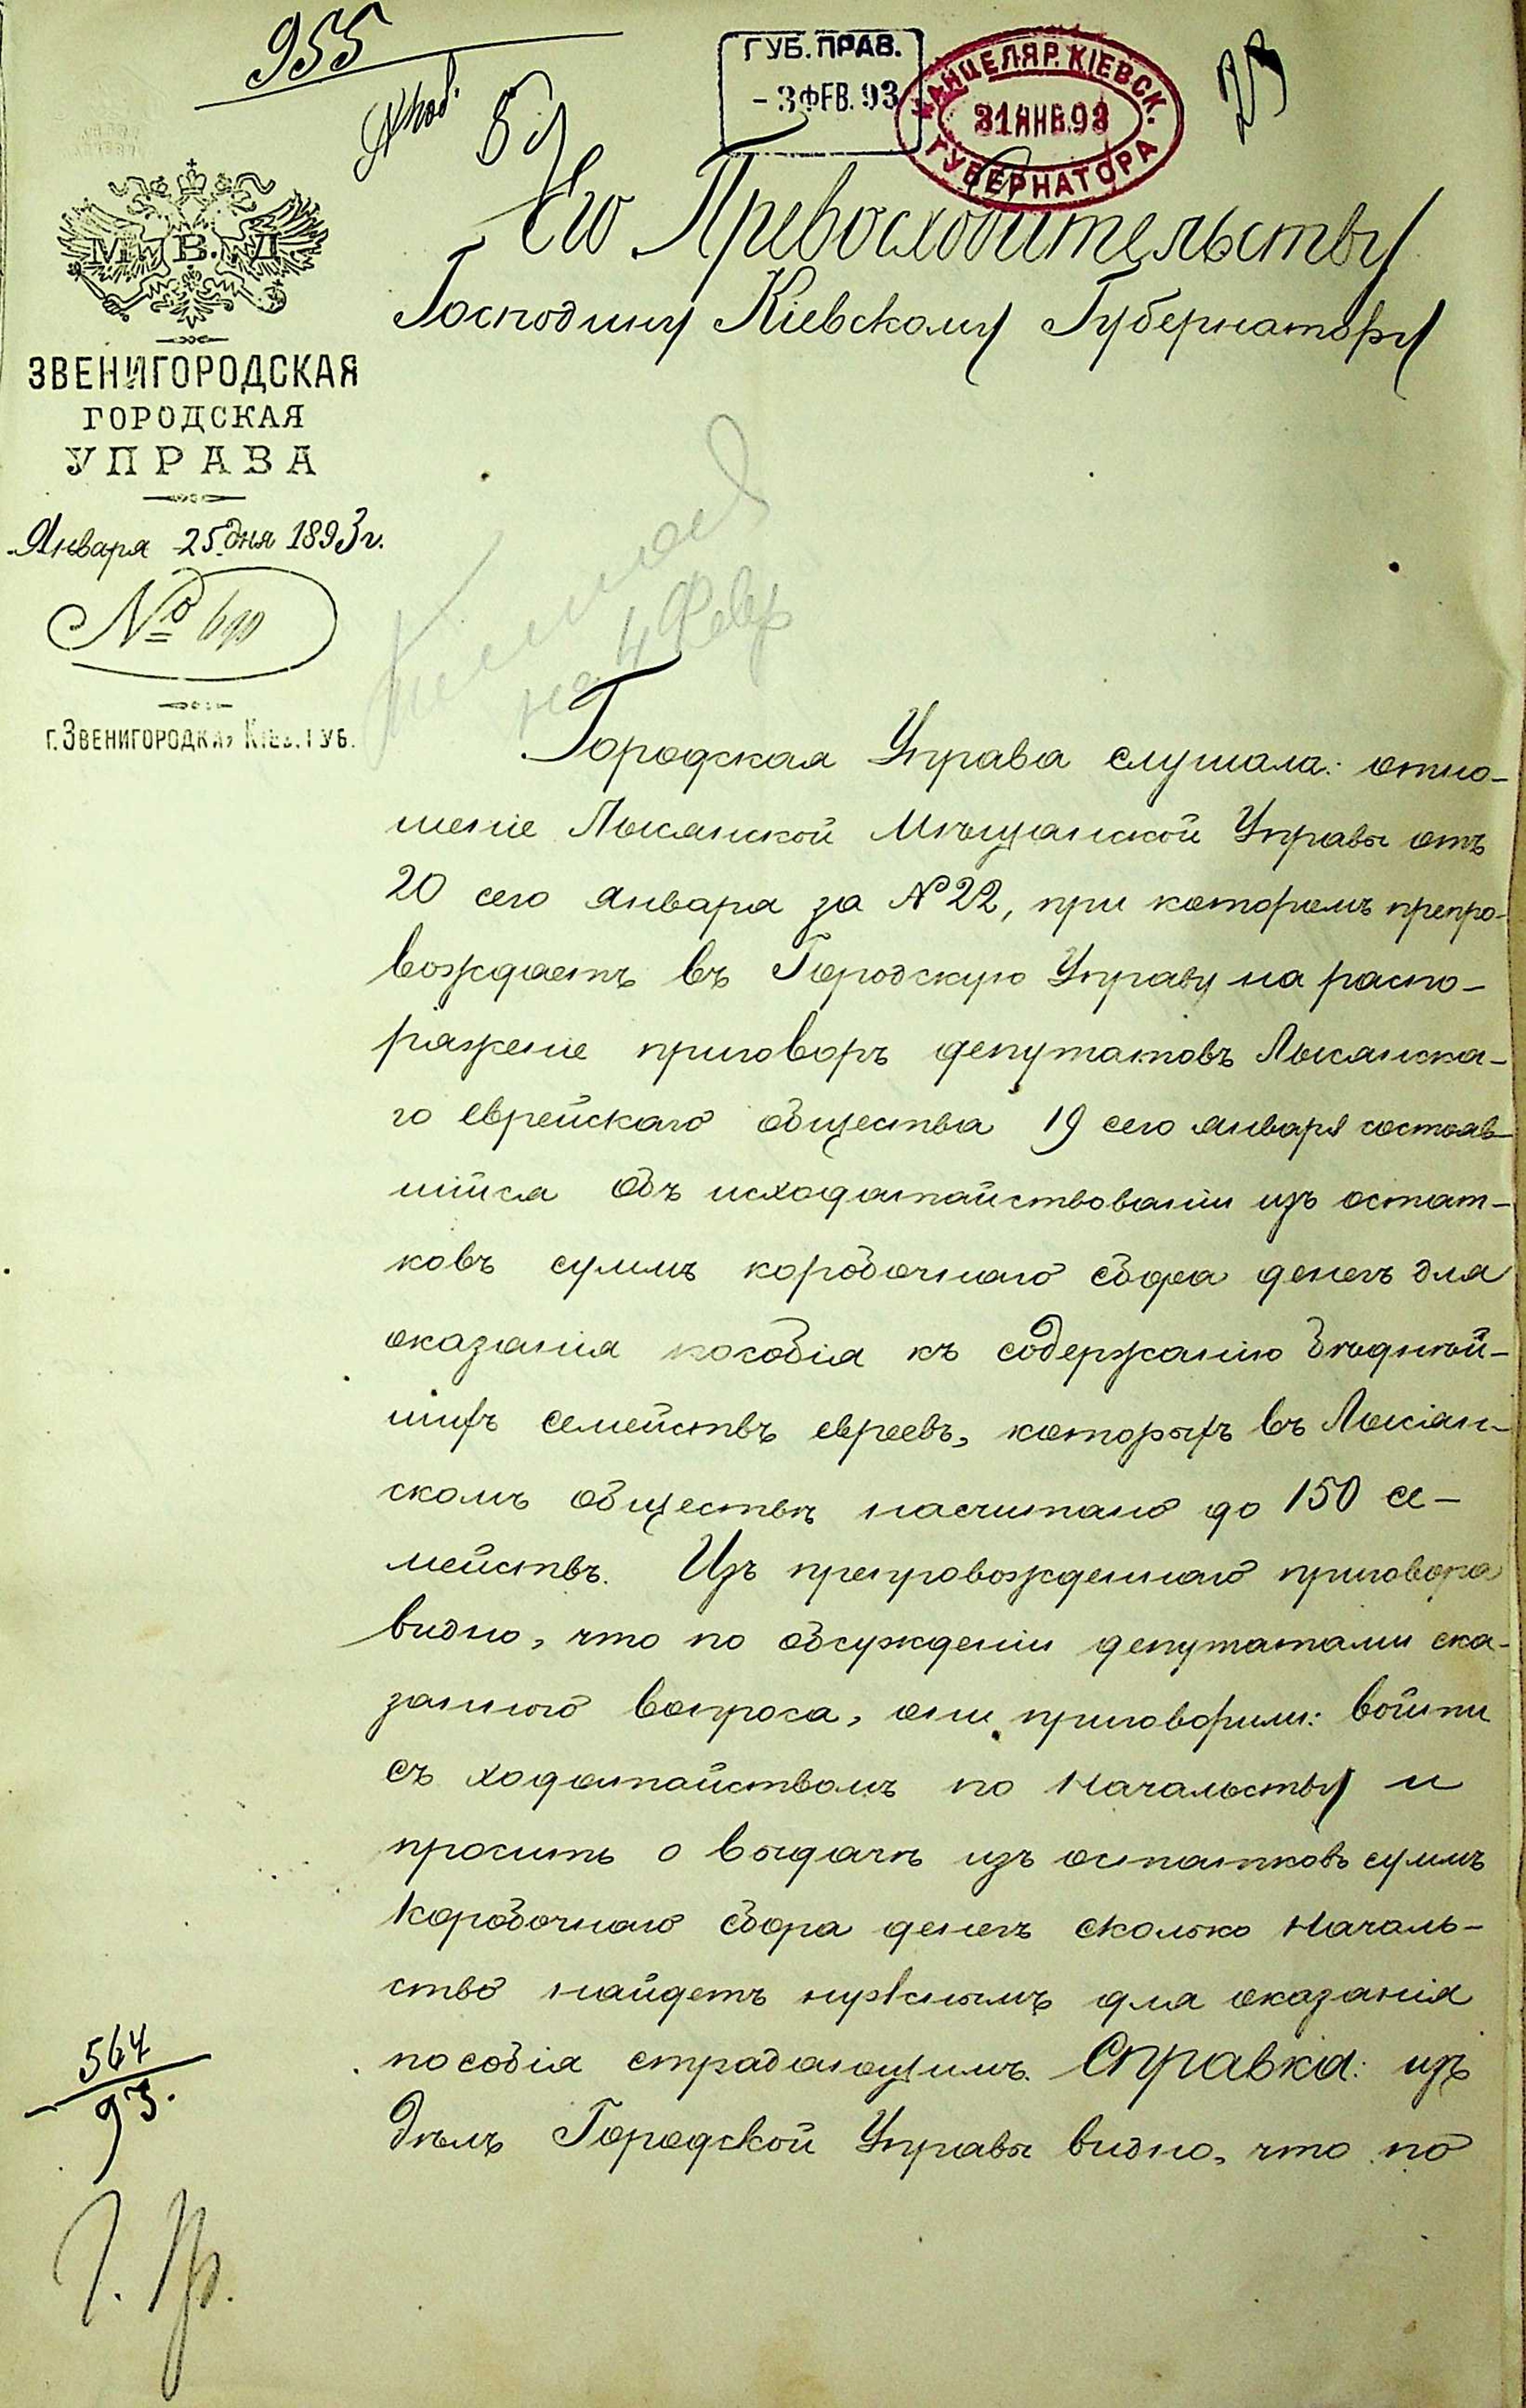 955
ГУБ. ПРАВ.
- 3 ФЕВ. 93
КАНЦЕЛЯР. КІЕВСК.
31 ЯНВ. 93
ГУБЕРНАТОРА
М. В. Д.
Его Превосходительству
Господину Кіевскому Губернатору
ЗВЕНИГОРОДСКАЯ
ГОРОДСКАЯ
УПРАВА
Января 25 дня 1893 г.
№
г. ЗВЕНИГОРОДКА, КІЕВ. ГУБ.
на 4 Февр
Городская Управа слушала: отно-
шеніе Лысянской Мѣщанской Управы отъ
20 сего января за № 22, при которомъ препро-
вождаетъ въ Городскую Управу на распо-
ряженіе приговоръ депутатовъ Лысянска-
го еврейскаго общества 19 сего января состояв-
шійся объ исходатайствованіи изъ остат-
ковъ суммъ коробочнаго сбора денегъ для
оказанія пособія къ содержанію бѣднѣй-
шихъ семействъ евреевъ, которыхъ въ Лысян-
скомъ обществѣ насчитано до 150 се-
мействъ. Изъ препровожденнаго приговора
видно, что по обсужденіи депутатами ска-
заннаго вопроса, они приговорили: войти
съ ходатайствомъ по Начальству и
просить о выдачѣ изъ остатковъ суммъ
коробочнаго сбора денегъ сколько Началь-
ство найдетъ нужнымъ для оказанія
пособія страдающимъ. Справка: изъ
дѣлъ Городской Управы видно, что по
564
93.